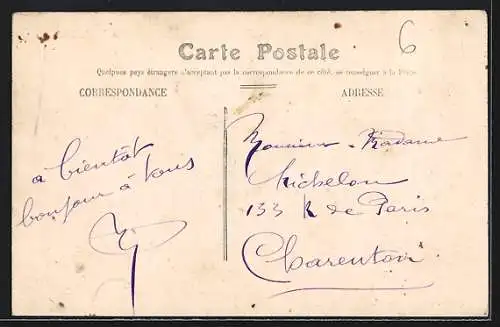 6
Carte Postale
Quelques pays étrangers n'acceptant pas la correspondance de ce côté, se renseigner à la Poste.
CORRESPONDANCE
ADRESSE
a bientôt
bonjour à tous
Monsieur Madame
Michelon
133 R de Paris
Charenton